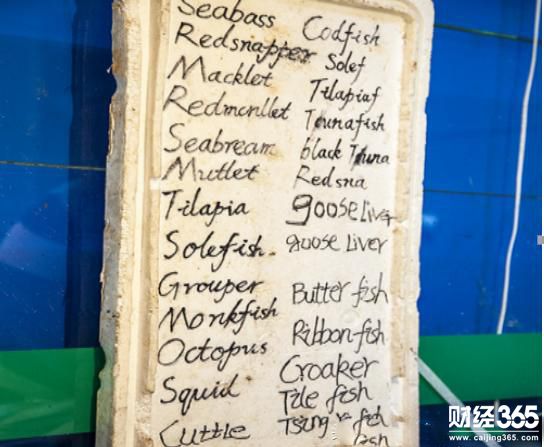 Seabass
Redsnapper
Macklet
Redmcnllet
Seabream
Mutlet
Tilapia
Solefish
Grouper
Monkfish
Octopus
Squid
Cuttle
Codfish
Solef
Tilapiaf
Tounafish
black Touna
Redsna
gooseLiver
goose Liver
Butter fish
Ribbon-fish
Croaker
Tile fish
Tsing fish
fish
财经365
caijing365.com